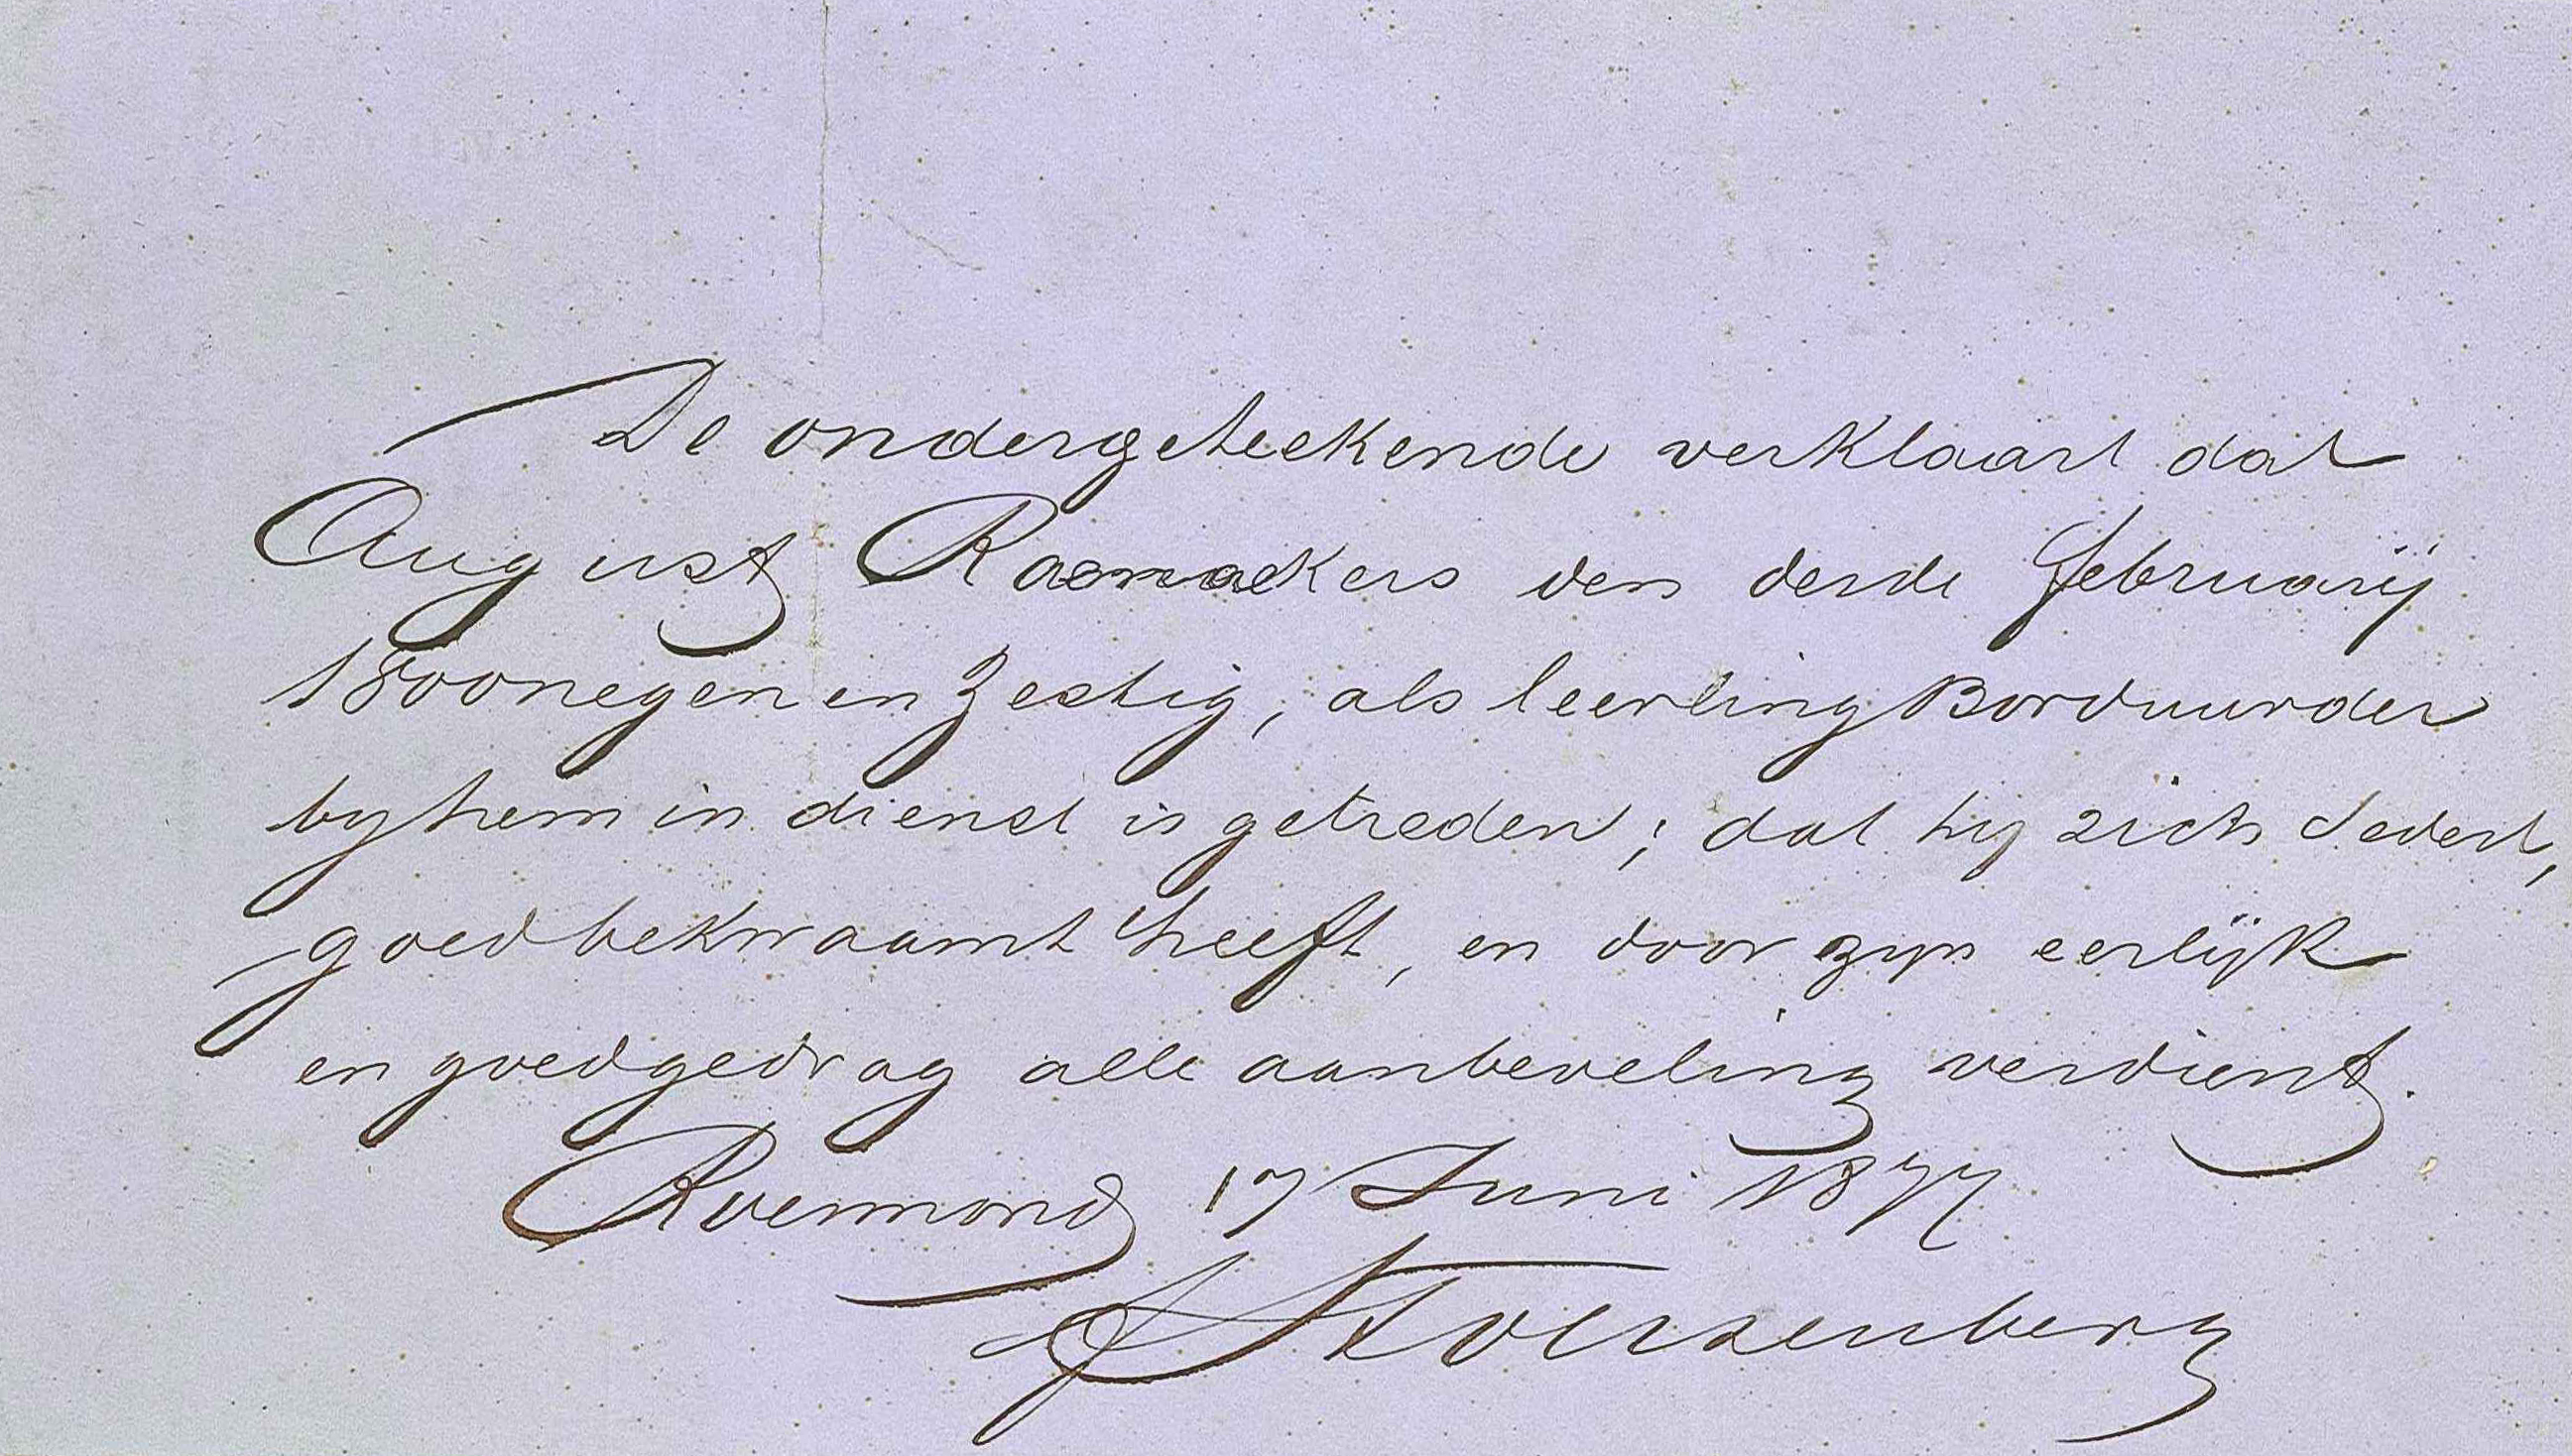 De ondergeteekende verklaart dat
August Raemaekers den derde februarij
1800negen en Zestig, als leerling Borduurder
by hem in dienst is getreden; dat hij zich sedert,
goed bekwaamt heeft, en door zyn eerlijk
en goed gedrag alle aanbeveling verdient.
Roermond 17 Juni 1877
Stoltzenberg